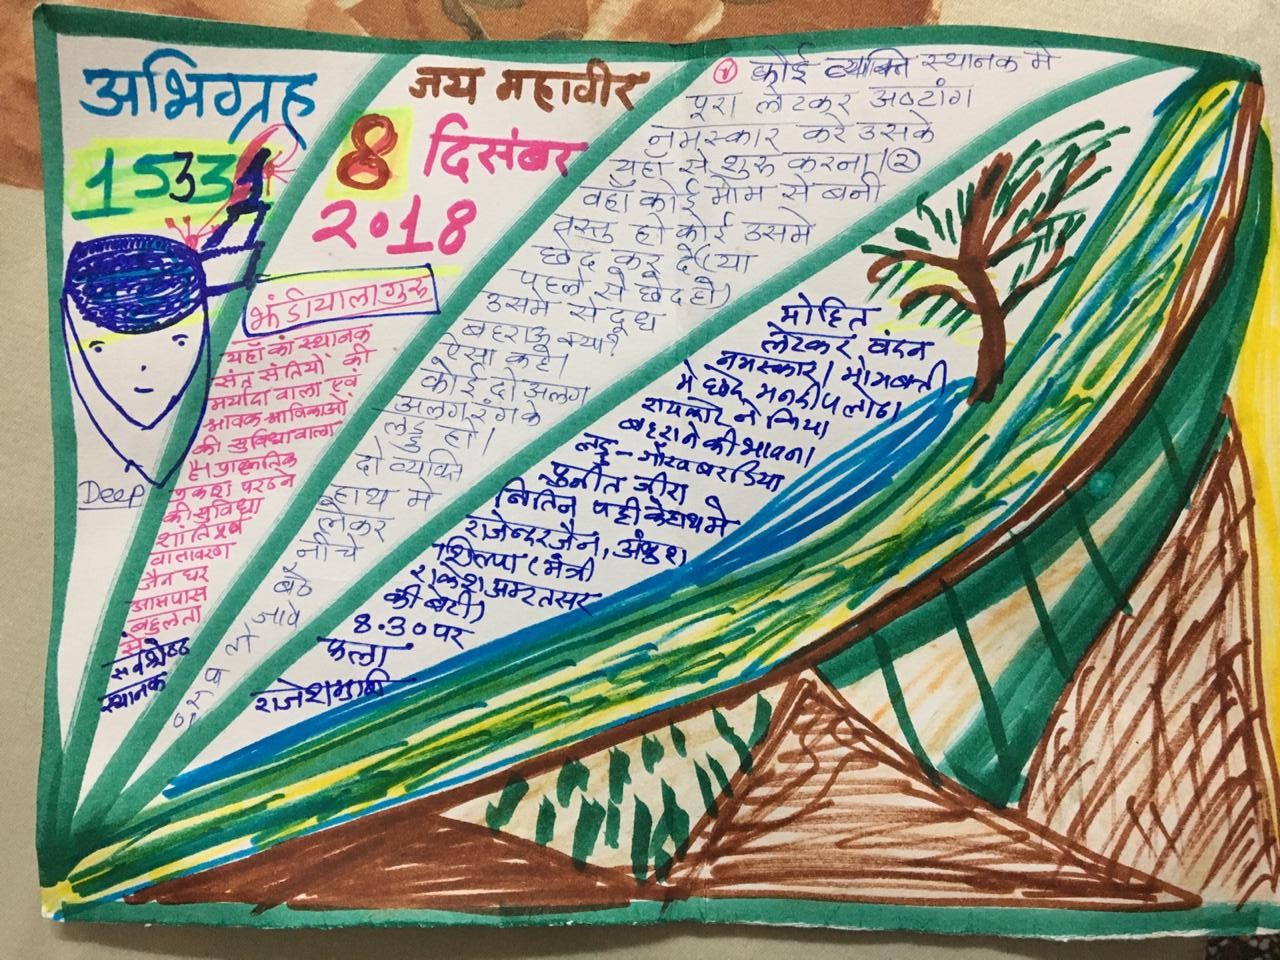 अभिग्रह
15331
Deep
जय महावीर
8 दिसंबर
2018
झंडीयालागुरु
यहाँ का स्थानक
संत सतियों की
मर्यादा वाला एवं
श्रावक श्राविकाओं
की सुविधा वाला
है। प्राकृतिक
प्रकाश परठने
की सुविधा
शांतिपूर्ण
वातावरण
जैन घर
आसपास
बहुलता
से
सर्वश्रेष्ठ
स्थानक
① कोई व्यक्ति स्थानक मे
पूरा लेटकर अष्टांग
नमस्कार करे उसके
यहाँ से शुरु करना। ②
वहाँ कोई मोम से बनी
वस्तु हो कोई उसमे
छेद कर दे (या
पहले से छेद हो)
उसमे से दूध
बहराऊ क्या?
ऐसा कहे।
कोई दो अलग
अलग रंग के
लड्डु हो।
दो व्यक्ति
हाथ मे
लेकर
नीचे
बैठ
जावे
मोहित
लेटकर वंदन
नमस्कार। मोमबत्ती
मे छेद मनदीप लोढा
रायकोट ने किया
बहराने की भावना
लड्डु - गौरव बरडिया
पुनीत जीरा
नितिन पट्टी के हाथ मे
राजेन्दर जैन, अंकुश
शिल्पा (मैत्री
राकेश अमरतसर
की बेटी)
8.30 पर
फला
राजेशमुनि